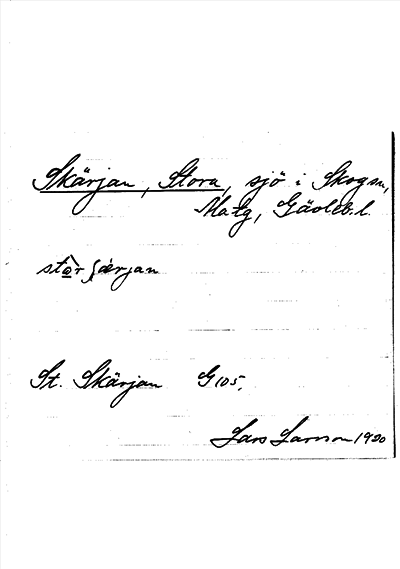 Skärjan, Stora, sjö i Skogsn,
Matg, Gävleb. l.
stæ̀r ʃærjan
St. Skärjan G 105.
Lars Larsson 1920